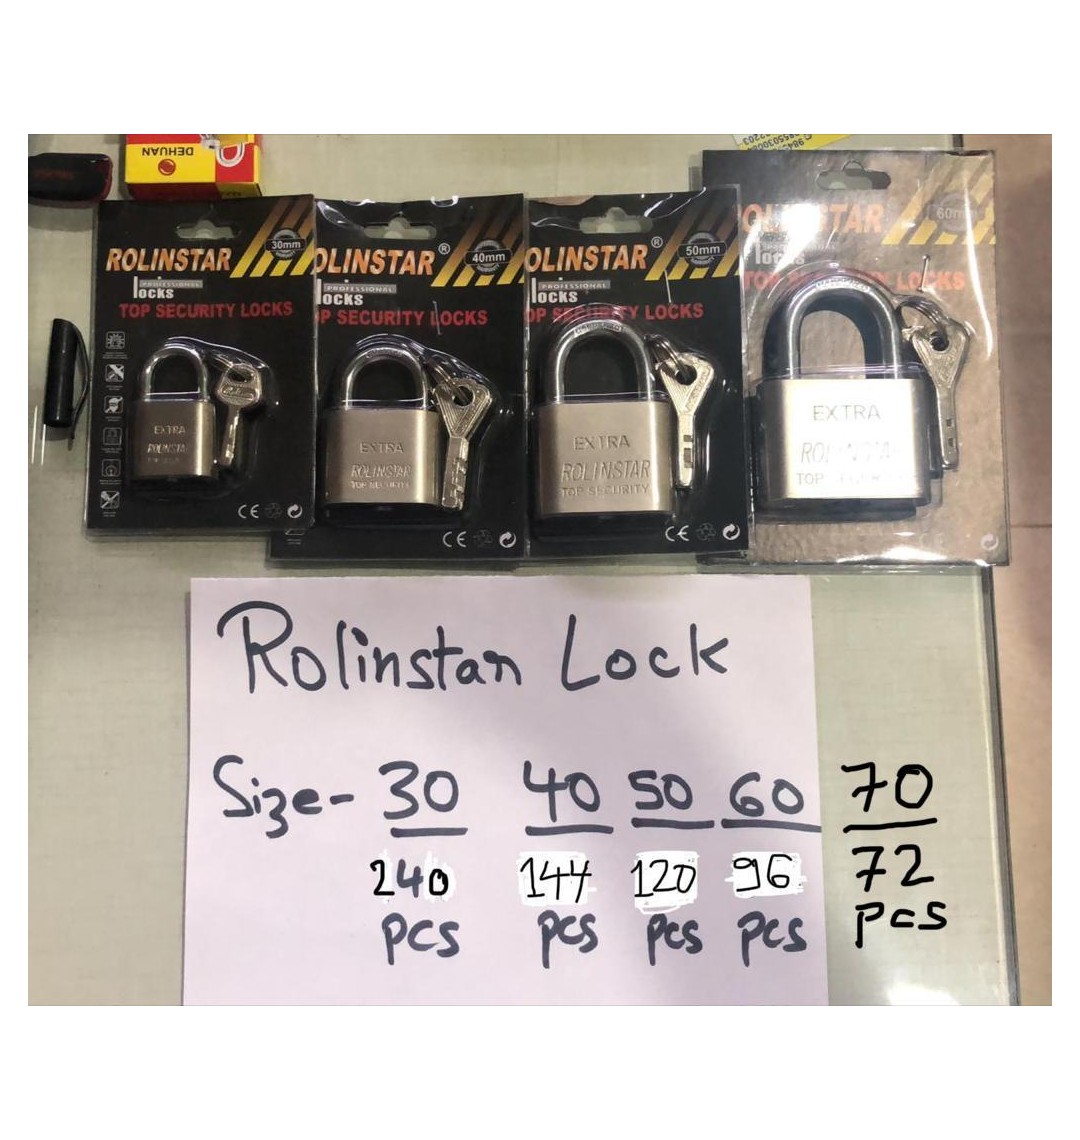 DEHUAN
ROLINSTAR 30mm
PROFESSIONAL
locks
TOP SECURITY LOCKS
EXTRA
ROLINSTAR
CE
OLINSTAR® 40mm
PROFESSIONAL
locks
P SECURITY LOCKS
EXTRA
ROLINSTAR
TOP SECURITY
CE
OLINSTAR® 50mm
PROFESSIONAL
locks
OP SECURITY LOCKS
EXTRA
ROLINSTAR
TOP SECURITY
CE
OLINSTAR 60m
locks
TOP SECURITY LOCKS
EXTRA
ROLINSTAR
TOP SECURITY
Rolinstar Lock
Size- 30 40 50 60 70
240 144 120 96 72
pcs pcs pcs pcs pcs